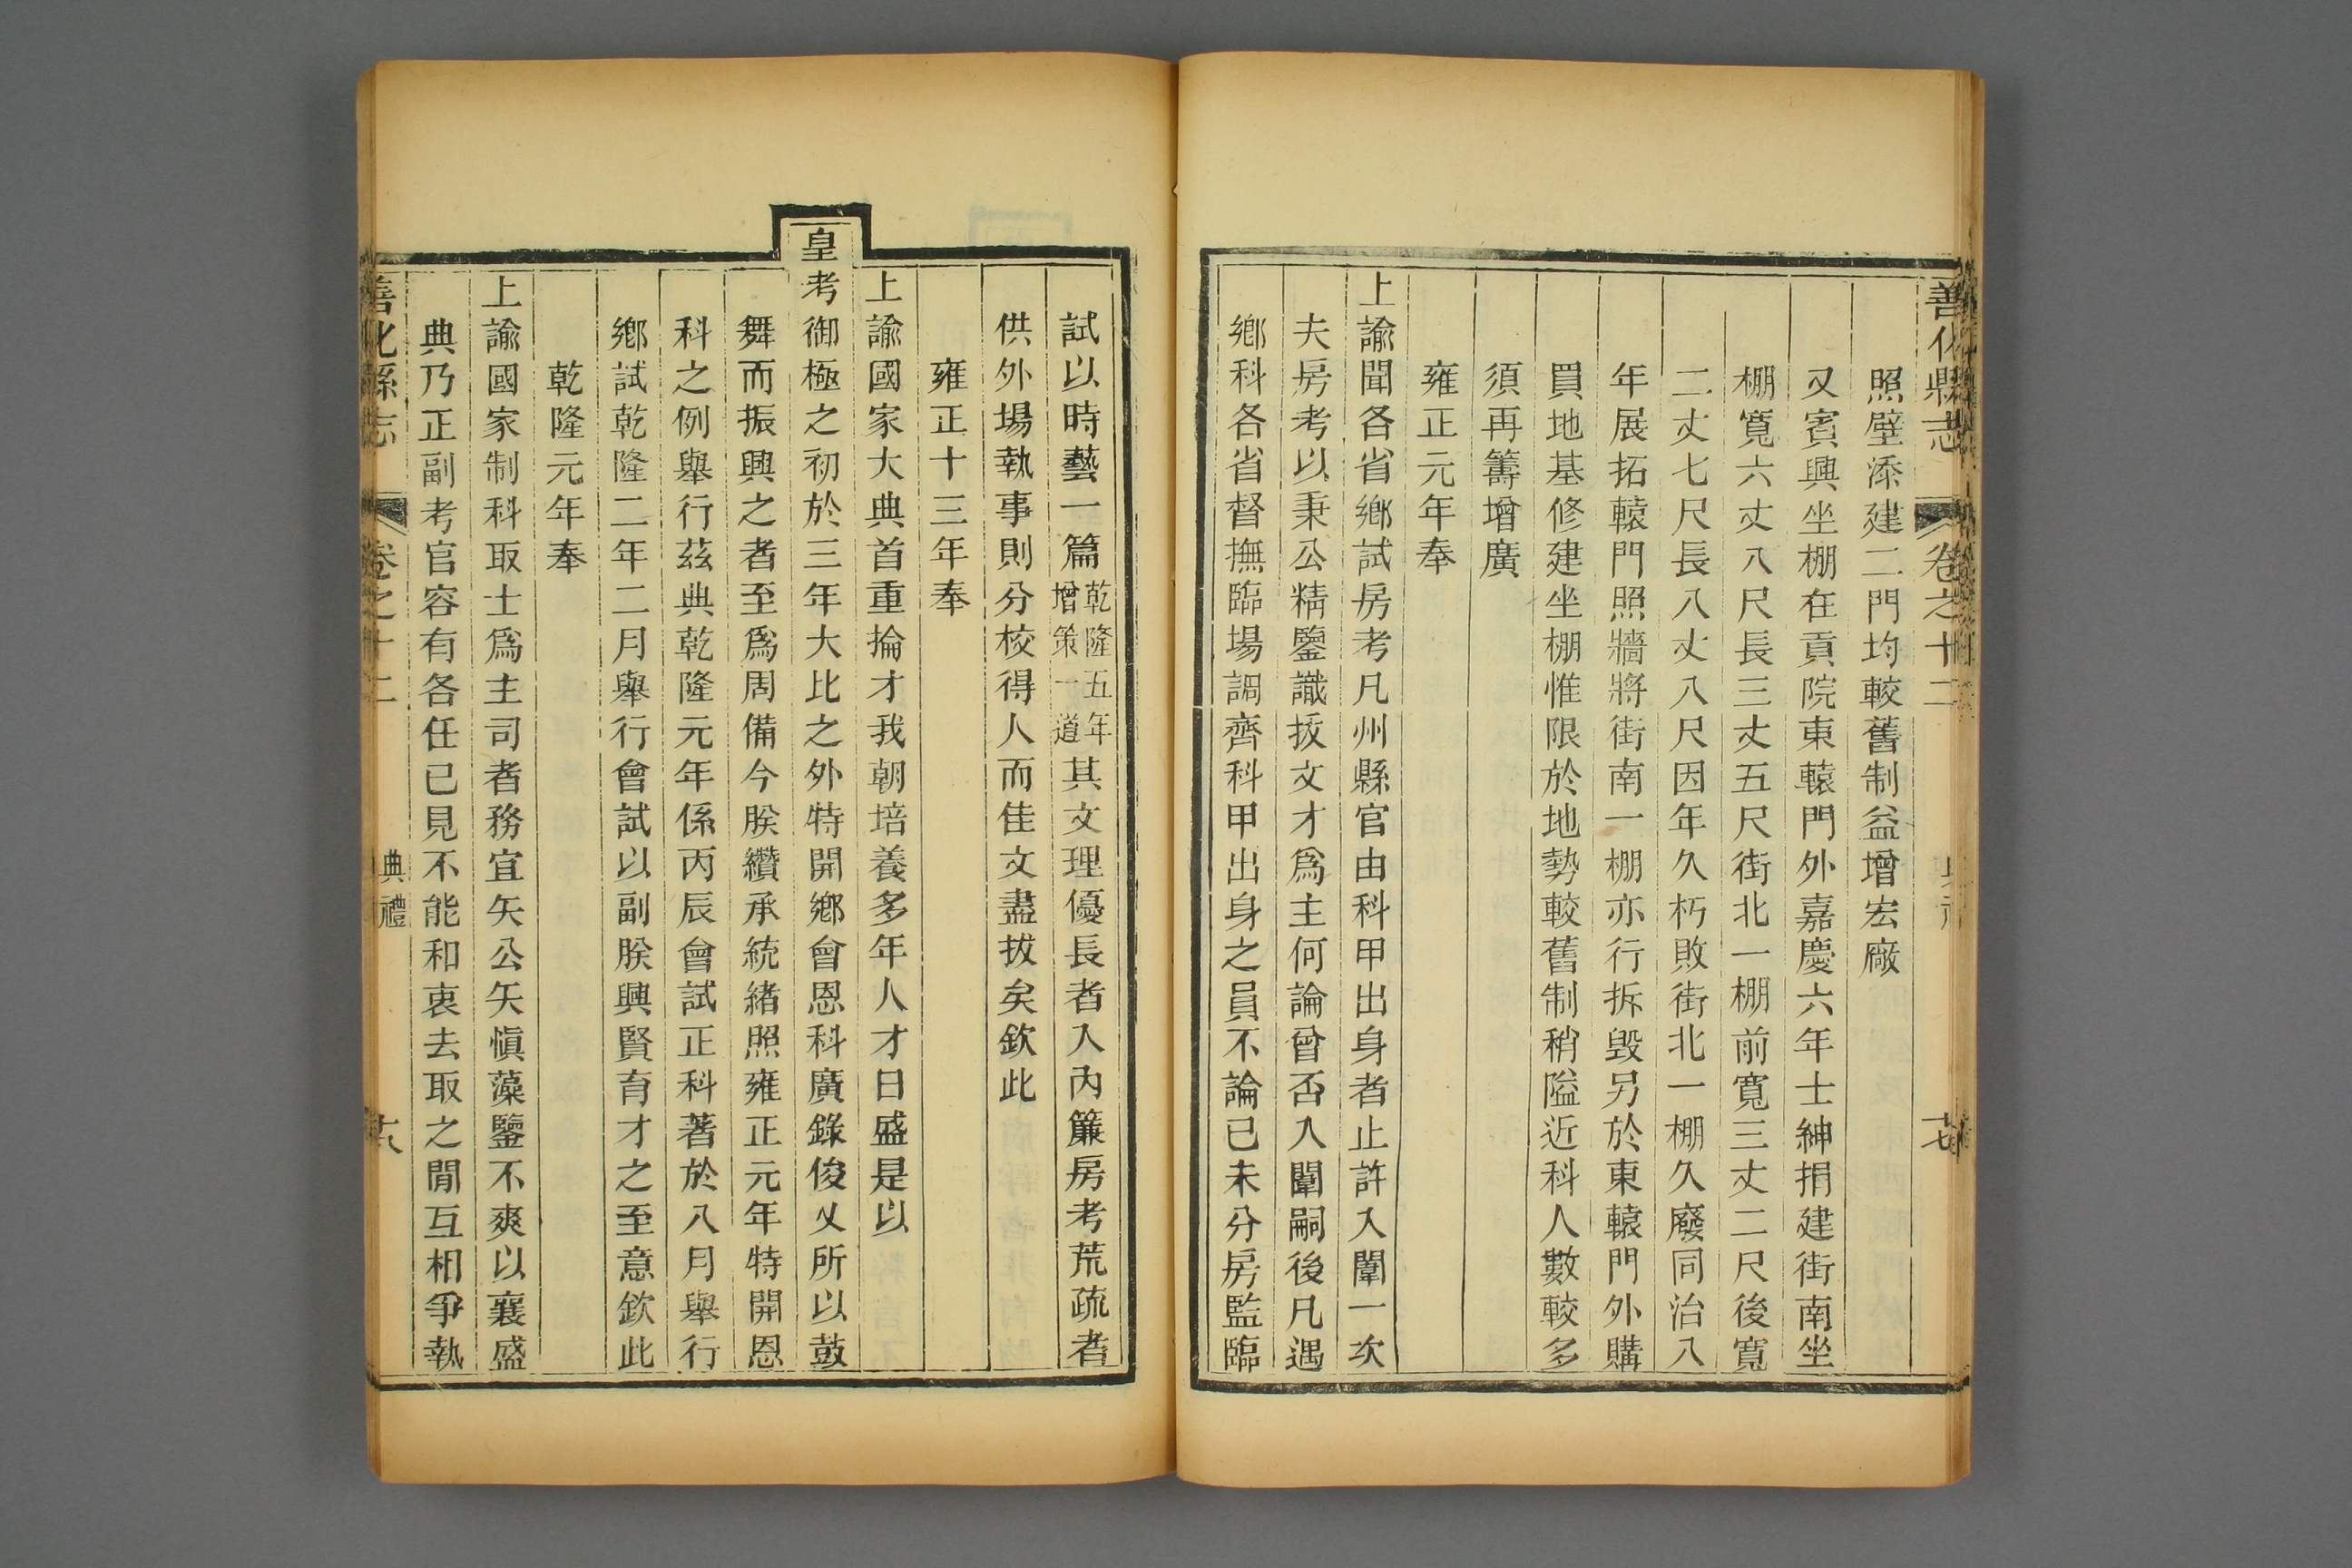 善化縣志 卷之十二
照壁添建二門均較舊制益增宏廠
又賓興坐棚在貢院東轅門外嘉慶六年士紳捐建街南坐
棚寬六丈八尺長三丈五尺街北一棚前寬三丈二尺後寬
二丈七尺長八丈八尺因年久朽敗街北一棚久廢同治八
年展拓轅門照牆將街南一棚亦行拆毀另於東轅門外購
買地基修建坐棚惟限於地勢較舊制稍隘近科人數較多
須再籌增廣
雍正元年奉
上諭聞各省鄉試房考凡州縣官由科甲出身者止許入闈一次
夫房考以秉公精鑒識拔文才為主何論曾否入闈嗣後凡遇
鄉科各省督撫臨場調齊科甲出身之員不論已未分房監臨
試以時藝一篇乾隆五年增策一道其文理優長者入內簾房考荒疏者
供外場執事則分校得人而佳文盡拔矣欽此
雍正十三年奉
上諭國家大典首重掄才我朝培養多年人才日盛是以
皇考御極之初於三年大比之外特開鄉會恩科廣錄俊乂所以鼓
舞而振興之者至為周備今朕纘承統緒照雍正元年特開恩
科之例舉行茲典乾隆元年係丙辰會試正科著於八月舉行
鄉試乾隆二年二月舉行會試以副朕興賢育才之至意欽此
乾隆元年奉
上諭國家制科取士為主司者務宜矢公矢慎藻鑒不爽以襄盛
典乃正副考官容有各任已見不能和衷去取之間互相爭執
善化縣志 卷之十二 典禮 十八